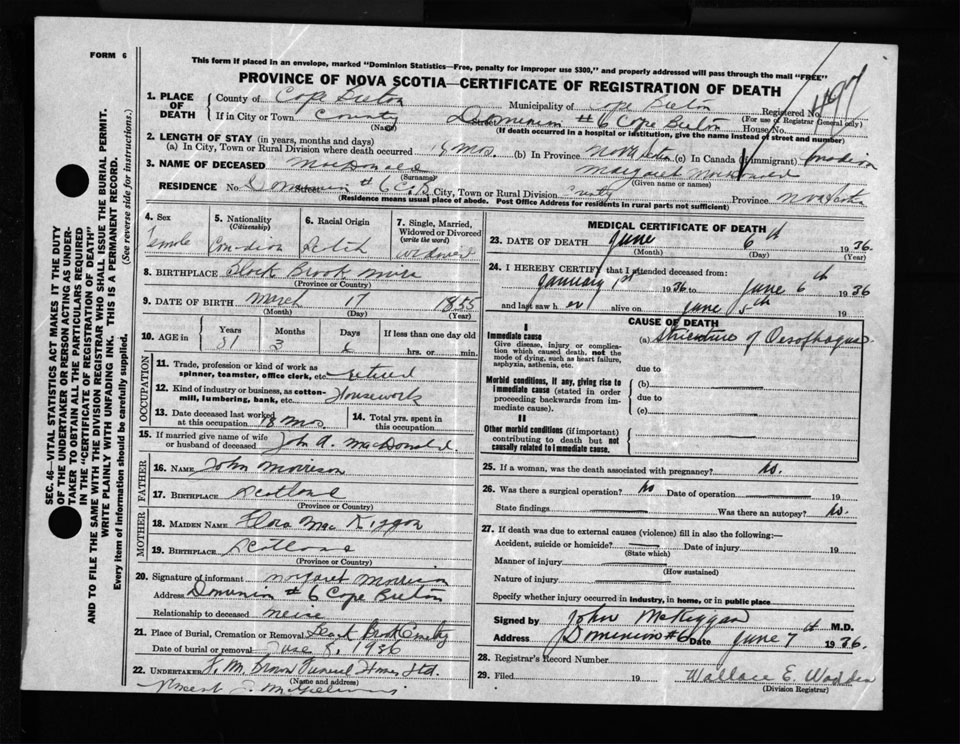 FORM 6
This form if placed in an envelope, marked "Dominion Statistics—Free, penalty for improper use $300," and properly addressed will pass through the mail "FREE"
PROVINCE OF NOVA SCOTIA—CERTIFICATE OF REGISTRATION OF DEATH
SEC. 46—VITAL STATISTICS ACT MAKES IT THE DUTY
OF THE UNDERTAKER OR PERSON ACTING AS UNDER-
TAKER TO OBTAIN ALL THE PARTICULARS REQUIRED
IN THE "CERTIFICATE OF REGISTRATION OF DEATH"
AND TO FILE THE SAME WITH THE DIVISION REGISTRAR WHO SHALL ISSUE THE BURIAL PERMIT.
WRITE PLAINLY WITH UNFADING INK. THIS IS A PERMANENT RECORD.
Every item of information should be carefully supplied. (See reverse side for instructions.)
1. PLACE OF DEATH County of Cape Breton Municipality of Cape Breton Registered No.
If in City or Town County (Name) Street Dominion #6 Cape Breton House No. (For use of Registrar General only)
(If death occurred in a hospital or institution, give the name instead of street and number)
2. LENGTH OF STAY (in years, months and days)
(a) In City, Town or Rural Division where death occurred mos. (b) In Province Nova Scotia (c) In Canada (if immigrant) Canadian
3. NAME OF DECEASED MacDonald (Surname) Margaret (Given name or names)
RESIDENCE No. Dominion #6 C.B. Street City, Town or Rural Division County Province Nova Scotia
(Residence means usual place of abode. Post Office Address for residents in rural parts not sufficient)
4. Sex Female
5. Nationality (Citizenship) Canadian
6. Racial Origin
7. Single, Married, Widowed or Divorced (write the word)
8. BIRTHPLACE Block Brook (Province or Country)
9. DATE OF BIRTH March 17 1855
(Month) (Day) (Year)
10. AGE in Years 81 Months 3 Days If less than one day old hrs. or min.
OCCUPATION
11. Trade, profession or kind of work as spinner, teamster, office clerk, etc. retired
12. Kind of industry or business, as cotton-mill, lumbering, bank, etc. Housework
13. Date deceased last worked at this occupation 18 mos.
14. Total yrs. spent in this occupation
15. If married give name of wife or husband of deceased John A. MacDonald
FATHER
16. NAME John Morrison
17. BIRTHPLACE Scotland
(Province or Country)
MOTHER
18. MAIDEN NAME Flora Mac
19. BIRTHPLACE Scotland
(Province or Country)
20. Signature of informant Margaret Morrison
Address Dominion #6 Cape Breton
Relationship to deceased neice
21. Place of Burial, Cremation or Removal Brook
Date of burial or removal June 8, 1936
22. UNDERTAKER F. M. Brown Funeral Home Ltd.
(Name and address)
MEDICAL CERTIFICATE OF DEATH
23. DATE OF DEATH June 6th 1936.
(Month) (Day)
24. I HEREBY CERTIFY that I attended deceased from:
January 1st 1936 to June 6th 1936
and last saw her alive on June 5th 19
CAUSE OF DEATH
I
Immediate cause
Give disease, injury or complication which caused death, not the mode of dying, such as heart failure, asphyxia, asthenia, etc.
(a) Stricture of Oesophagus
due to
Morbid conditions, if any, giving rise to immediate cause (stated in order proceeding backwards from immediate cause).
(b)
due to
(c)
II
Other morbid conditions (if important) contributing to death but not causally related to immediate cause.
25. If a woman, was the death associated with pregnancy? No.
26. Was there a surgical operation? No Date of operation 19
State findings Was there an autopsy? No.
27. If death was due to external causes (violence) fill in also the following:—
Accident, suicide or homicide? Date of injury 19
(State which)
Manner of injury
(How sustained)
Nature of injury
Specify whether injury occurred in industry, in home, or in public place
Signed by John McKiggan M.D.
Address Dominion #6 Date June 7th 1936.
28. Registrar's Record Number
29. Filed 19 Wallace E. Wadden
(Division Registrar)